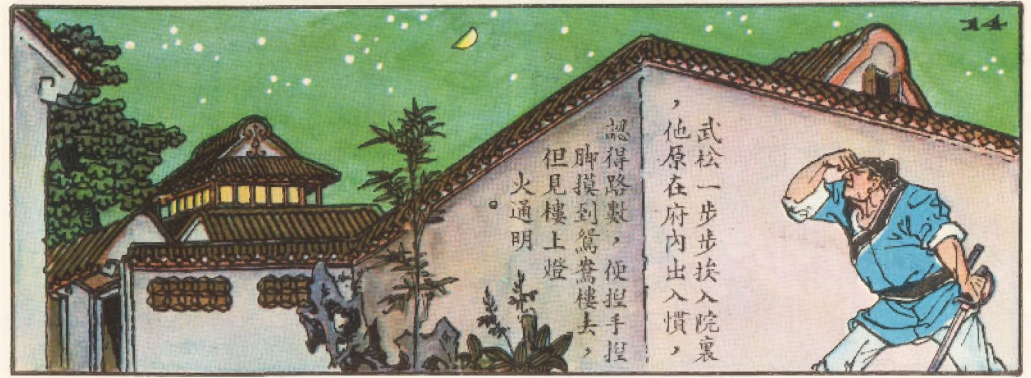 14
武松一步步挨入院裏
，他原在府內出入慣，
認得路數，便捏手捏
脚摸到鴛鴦樓去，
但見樓上燈
火通明
。